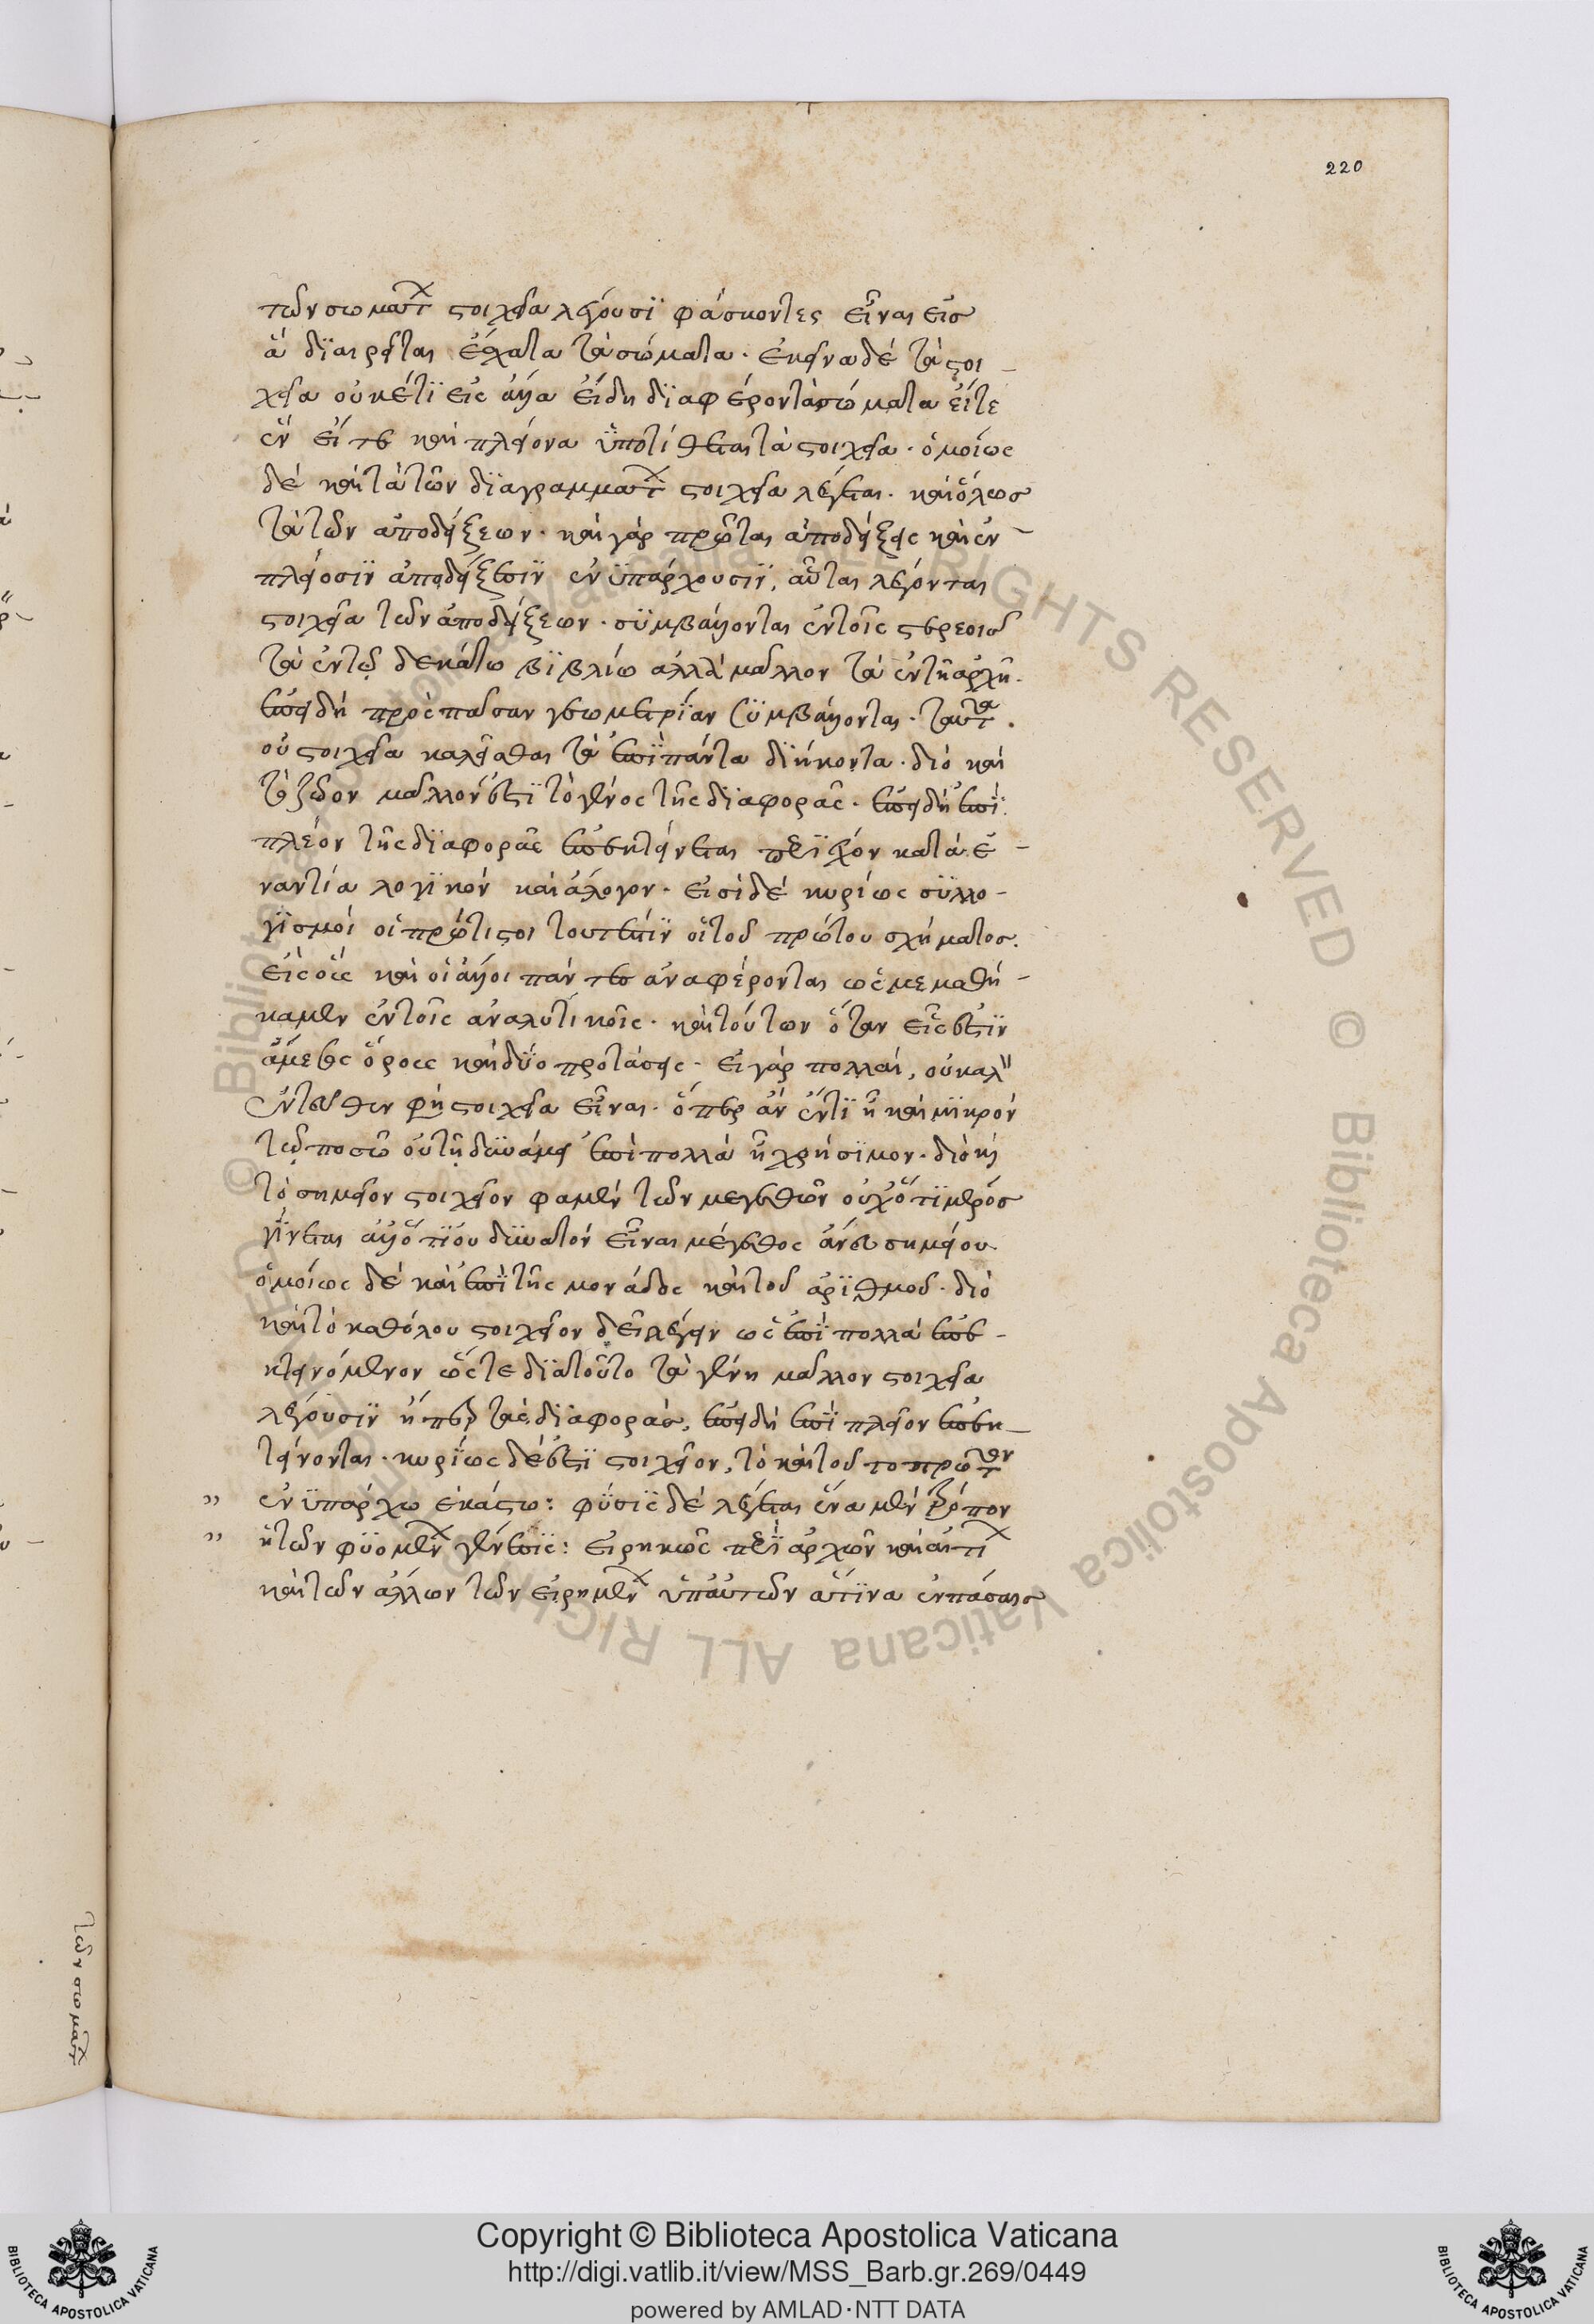 220
τῶν σωματ στοιχεῖα λέγουσϊ φάσκοντες εἶναι εἰσ
ἃ διαιρεῖται ἔσχατα τὰ σώματα· ἐκεῖνα δὲ τὰ στοι
χεῖα οὐκέτι εἰς ἄλλα εἴδη διαφέροντα σώματα εἴτε
ἓν εἴτε καὶ πλείονα ὑποτίθεται τὰ στοιχεῖα· ὁμοίως
δὲ καὶ τὰ τῶν διαγραμματ στοιχεῖα λέγεται· καὶ ὅλωσ
τὰ τῶν ἀποδείξεων· καὶ γὰρ πρῶται ἀποδείξεις καὶ ἐν
πλείοσιν ἀποδείξεσιν ἐνϋπάρχουσϊν, αὗται λέγονται
στοιχεῖα τῶν ἀποδείξεων· συμβάλλονται ἐν τοῖς στερεοῖσ
τὰ ἐν τῷ δεκάτω βιβλίω ἀλλὰ μᾶλλον τὰ ἐν τῇ ἀρχῇ·
ἐπειδὴ πρὸς πᾶσαν γεωμετρίαν συμβάλλονται· ταῦτα·
οὐ στοιχεῖα καλεῖσθαι τὰ ἐπὶ πάντα διήκοντα· διὸ καὶ
τὸ ζῶον μᾶλλόν ἐστϊ τὸ γένος τῆς διαφορᾶς· ἐπειδὴ ἐπὶ
πλέον τῆς διαφορᾶς ἐπεκτείνεται κατὰ ἐ
ναντία λογικὸν καὶ ἄλογον· εἰσὶ δὲ κυρίως συλλο
γισμοὶ οἱ πρώτιστοι τουτέστιν οἱ τοῦ πρώτου σχήματοσ·
εἰς οὓς καὶ οἱ ἄλλοι πάντες ἀναφέρονται ὡς μεμαθή
καμεν ἐν τοῖς ἀναλυτικοῖς· καὶ τούτων ὅταν εἷς ἐστϊν
ὅρος καὶ δύο προτάσεις· εἰ γὰρ πολλαὶ, οὐκαλ
ἐντεῦθεν φὴ στοιχεῖα εἶναι· ὅπερ ἂν ἕν τι ᾖ καὶ μικρὸν
τῷ ποσῶ ἐν τῇ δυνάμει ἐπὶ πολλὰ ᾖ χρήσιμον· διὸ καὶ
τὸ σημεῖον στοιχεῖον φαμὲν τῶν μεγεθῶν οὐχ ὅτι μέροσ
γίνεται ἀλλ' ὅτι οὐ δυνατὸν εἶναι μέγεθος ἄνευ σημείου
ὁμοίως δὲ καὶ ἐπὶ τῆς μονάδος καὶ τοῦ ἀριθμοῦ· διὸ
καὶ τὸ καθόλου στοιχεῖον δεῖ λέγειν ὡς ἐπὶ πολλὰ ἐπε
κτεινόμενον ὥστε διὰ τοῦτο τὰ γένη μᾶλλον στοιχεῖα
λέγουσϊν ἤπερ τὰς διαφορὰσ, ἐπειδὴ ἐπὶ πλεῖον ἐπεκ
τείνονται· κυρίως δέ ἐστϊ στοιχεῖον, τὸ καὶ τοῦ το πρῶτον
" ἐνϋπάρχω ἑκάστω: φύσϊς δὲ λέγεται ἕνα μὲν τρόπον
" ἡ τῶν φυομέν γένεσϊς: εἰρηκὼς περὶ ἀρχῶν καὶ αἰτι
καὶ τῶν ἄλλων τῶν εἰρημέν ὑπ' αὐτῶν ἅτινα ἐν πάσαισ
τῶν σωματ
Copyright © Biblioteca Apostolica Vaticana
http://digi.vatlib.it/view/MSS_Barb.gr.269/0449
powered by AMLAD·NTT DATA
BIBLIOTECA APOSTOLICA VATICANA
BIBLIOTECA APOSTOLICA VATICANA
© Biblioteca Apostolica Vaticana ALL RIGHTS RESERVED © Biblioteca Apostolica Vaticana ALL RIGHTS RESERVED